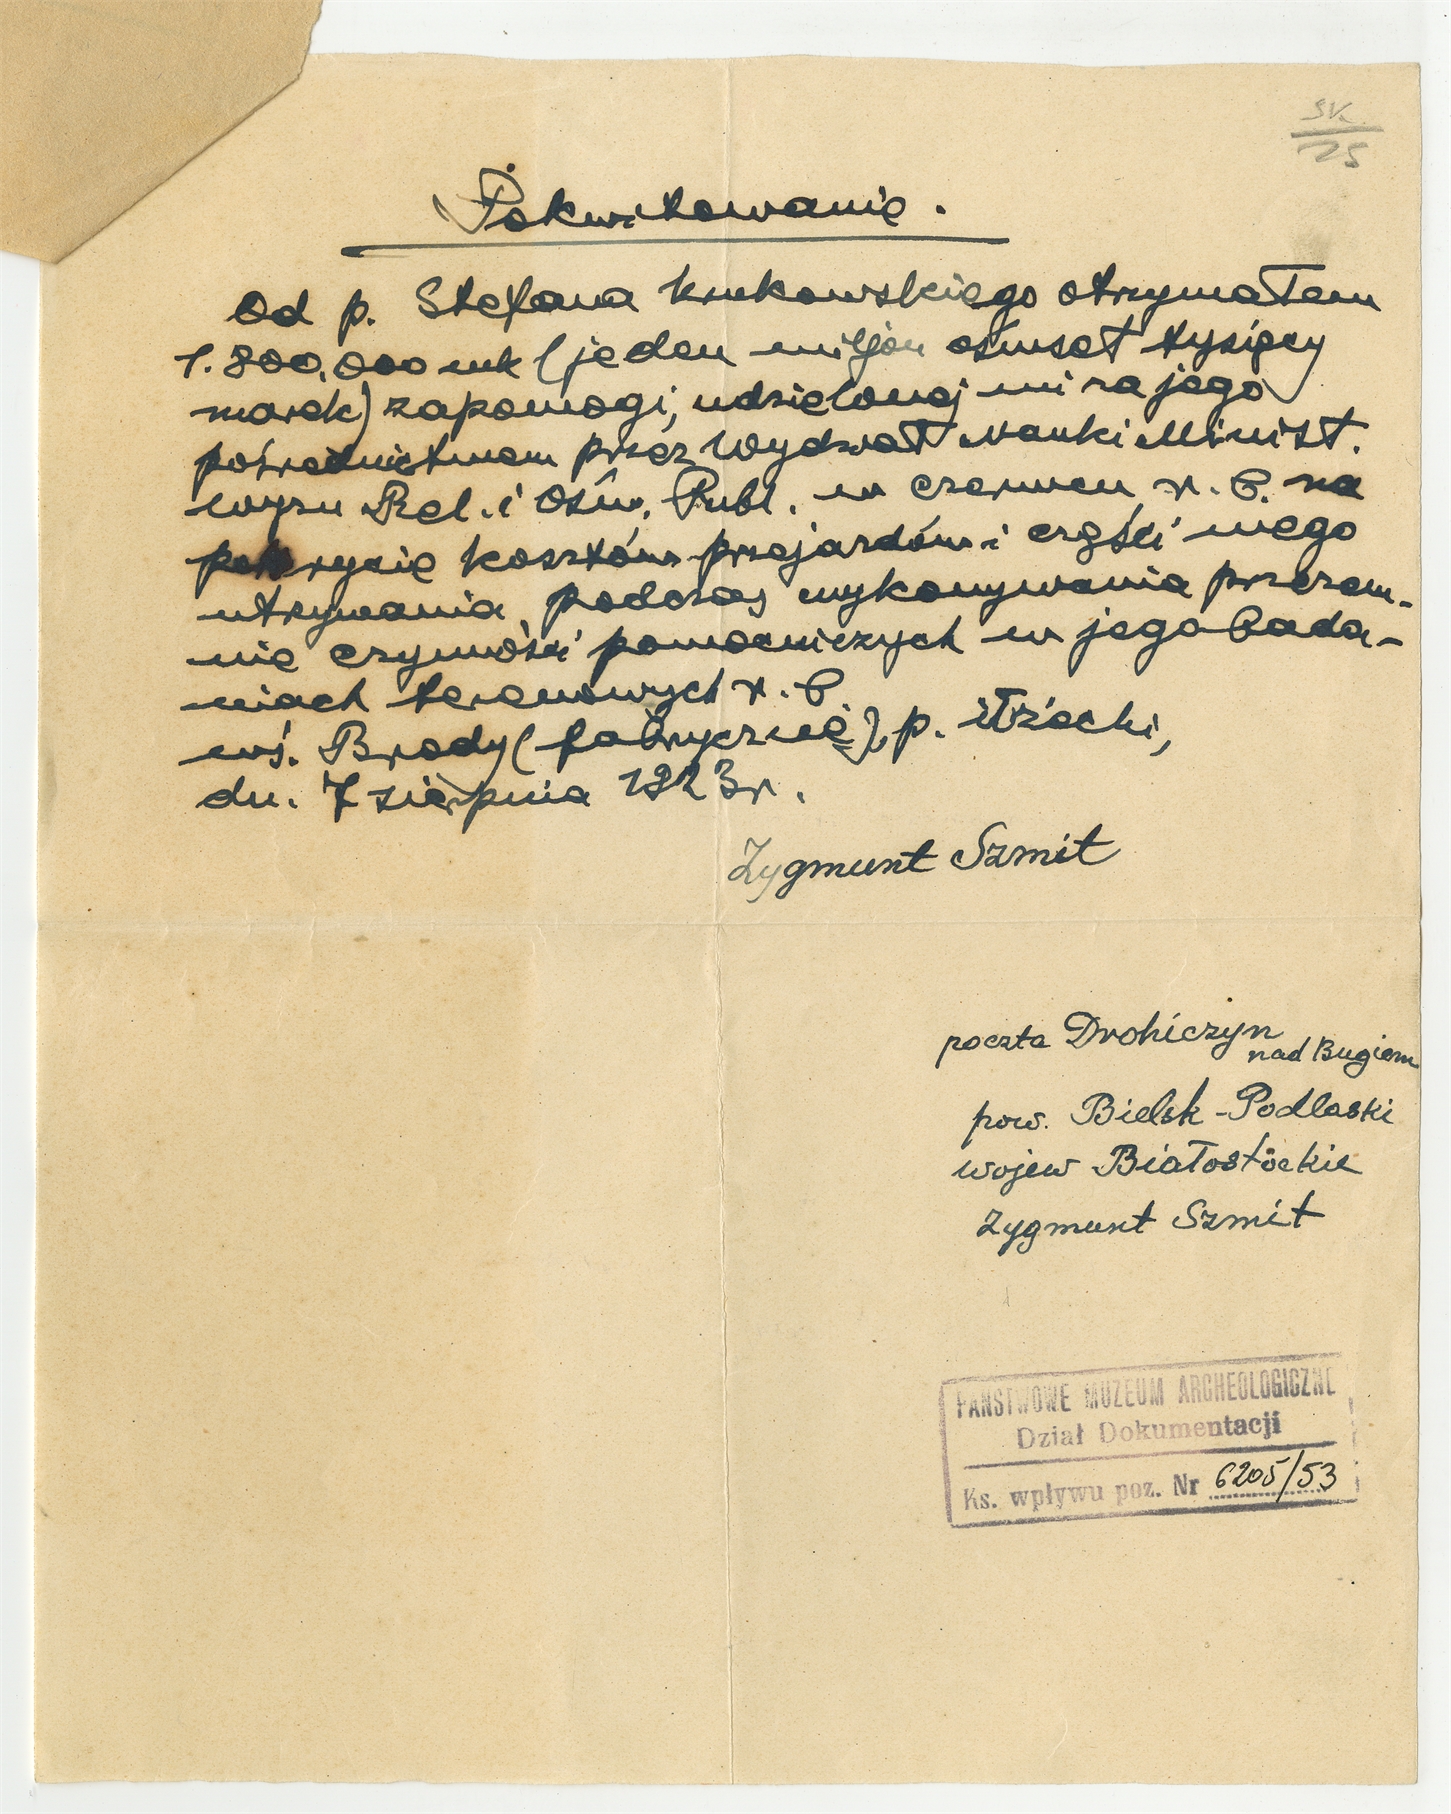 Pokwitowanie.
Od p. Stefana Krukowskiego otrzymałem
1.800.000 mk (jeden miljon ośmset tysięcy
marek) zapomogi, udzielonej mi za jego
pośrednictwem przez Wydział Nauki Minist.
Wyzn Rel. i Ośw. Publ. w czerwcu r. b. na
pokrycie kosztów przejazdów i części mego
utrzymania podczas wykonywania przezem-
nie czynności pomocniczych w jego bada-
niach terenowych r. b.
wś. Brody (fabryczne), p. iłżecki,
dn. 7 sierpnia 1923 r.
Zygmunt Szmit
poczta Drohiczyn
nad Bugiem
pow. Bielsk-Podlaski
wojew Białostockie
Zygmunt Szmit
PAŃSTWOWE MUZEUM ARCHEOLOGICZNE
Dział Dokumentacji
Ks. wpływu poz. Nr 6205/53